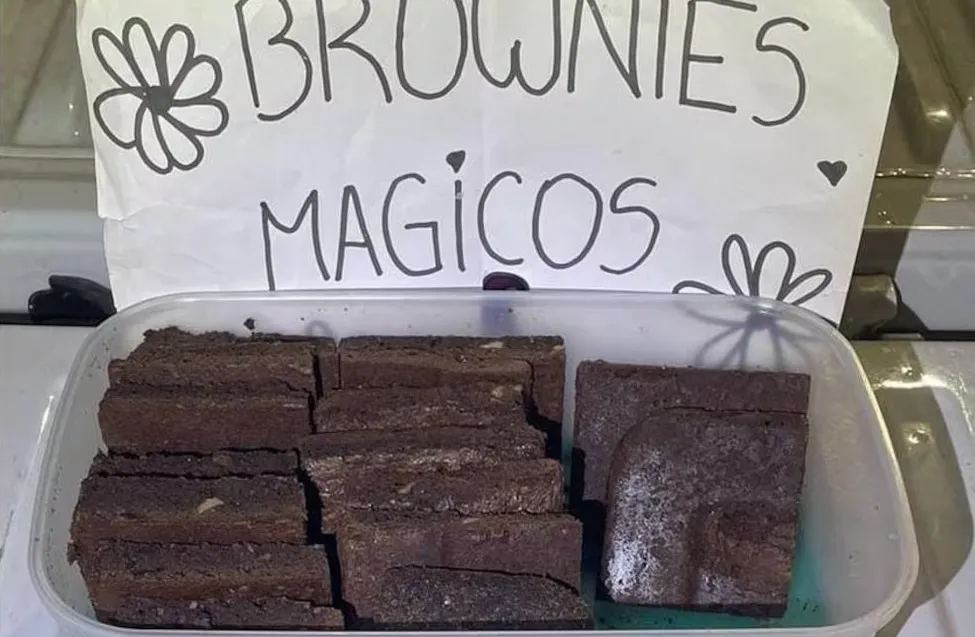 BROWNIES
MAGiCOS